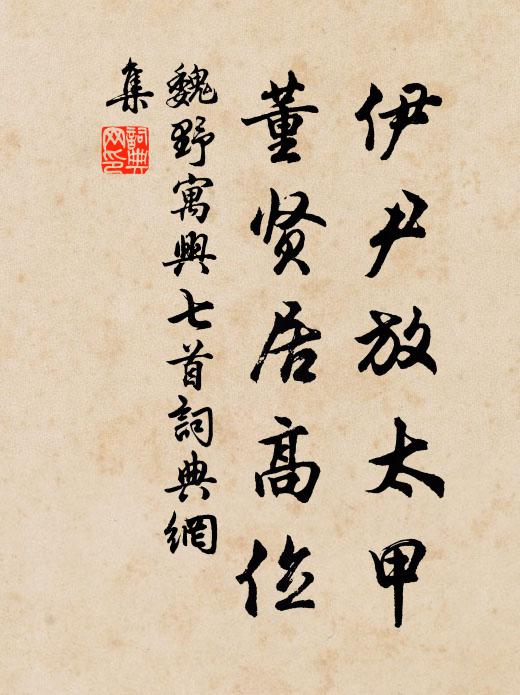 伊尹放太甲
董贤居高位
魏野寓興七首詞典網
集
詞典网印